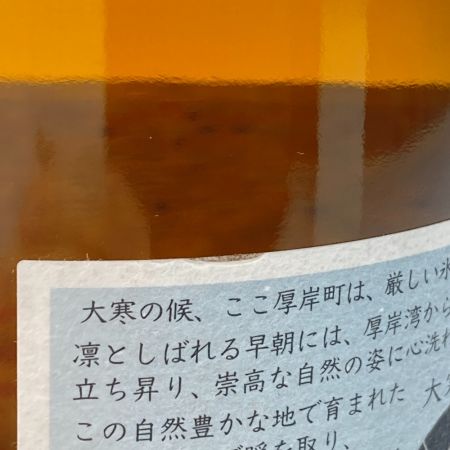 大寒の候、ここ厚岸町は、厳しい氷
凛としばれる早朝には、厚岸湾から
立ち昇り、崇高な自然の姿に心洗れ
この自然豊かな地で育まれた 大
暖を取り、